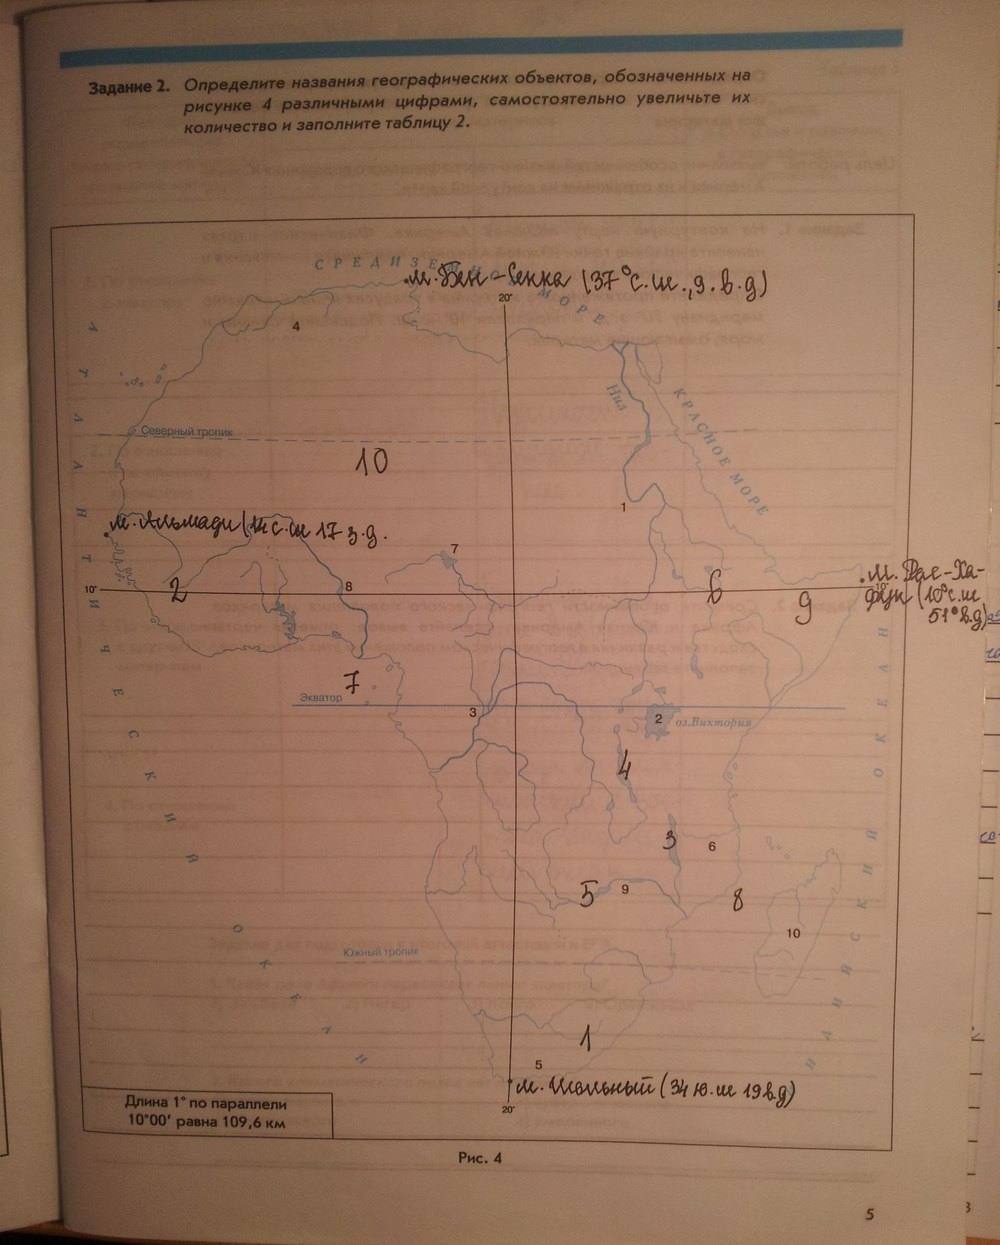 Задание 2. Определите названия географических объектов, обозначенных на
рисунке 4 различными цифрами, самостоятельно увеличьте их
количество и заполните таблицу 2.
СРЕДИЗЕМНОЕ МОРЕ
м. Бен-Секка (37° с.ш., 9. в.д)
20°
4
АТЛАНТИЧЕСКИЙ ОКЕАН
Нил
КРАСНОЕ МОРЕ
Северный тропик
10
1
м. Альмади (14 с.ш 17 з.д.
7
м. Рас-Ха-
10°
2
8
6
9
10°
фун (10° с.ш
51° в.д)
7
Экватор
3
2
оз.Виктория
4
3
6
5
9
8
10
ИНДИЙСКИЙ ОКЕАН
Южный тропик
1
5
м. Игольный (34 ю.ш 19 в.д)
20°
Длина 1° по параллели
10°00' равна 109,6 км
Рис. 4
5